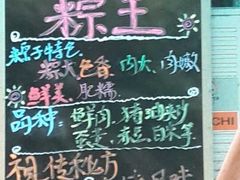 粽王
粽子特色
粽大色香 肉大 肉嫩
鲜美 肥糯
品种: 鲜肉 猪油夹沙
蛋黄 赤豆 白米等
祖传秘方
CHI